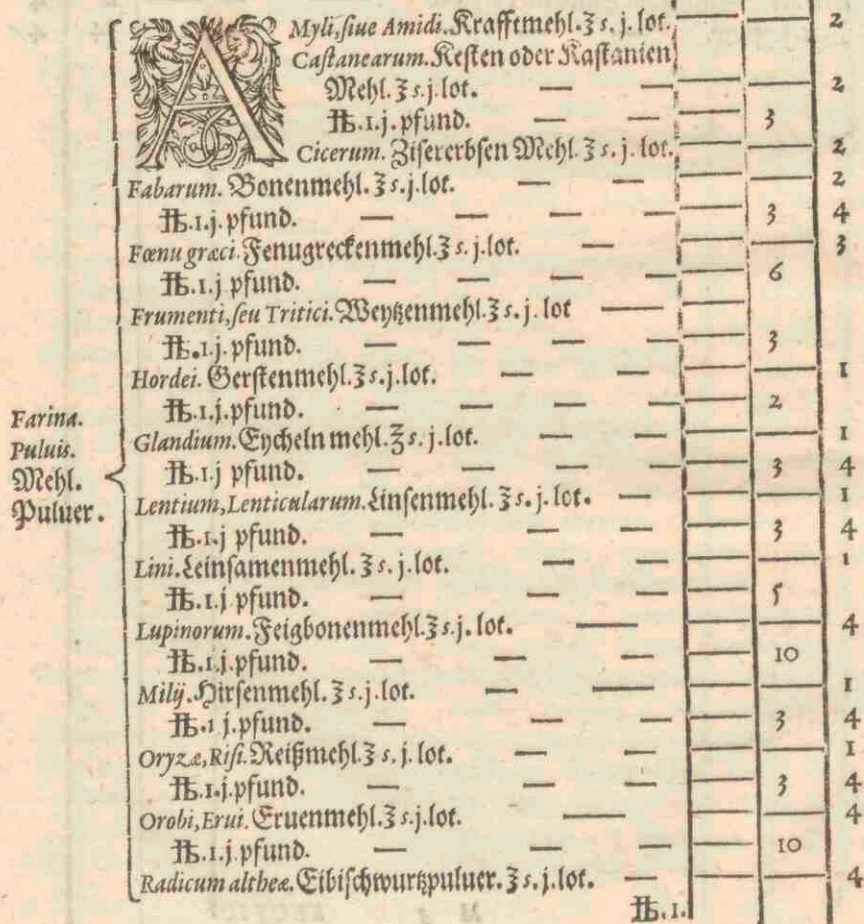 Farina.
Puluis.
Mehl.
Puluer.
AMyli, ſiue Amidi. Krafftmehl. ℥ s. j. lot. — — 2
Caſtanearum. Keſten oder Kaſtanien
Mehl. ℥ s. j. lot. — — — — 2
℔. 1. j. pfund. — — — 3
Cicerum. Ziſererbſen Mehl. ℥ s. j. lot. — — 2
Fabarum. Bonenmehl. ℥ s. j. lot. — — — — 2
℔. 1. j. pfund. — — — — — 3 4
Fœnu græci. Fenugreckenmehl. ℥ s. j. lot. — — — 3
℔. 1. j pfund. — — — — — 6
Frumenti, ſeu Tritici. Weytzenmehl. ℥ s. j. lot — — —
℔. 1. j. pfund. — — — — — 3
Hordei. Gerſtenmehl. ℥ s. j. lot. — — — — 1
℔. 1. j. pfund. — — — — — 2
Glandium. Eycheln mehl. ℥ s. j. lot. — — — — 1
℔. 1. j pfund. — — — — — 3 4
Lentium, Lenticularum. Linſenmehl. ℥ s. j. lot. — — — 1
℔. 1. j pfund. — — — — 3 4
Lini. Leinſamenmehl. ℥ s. j. lot. — — — — 1
℔. 1. j pfund. — — — — 5
Lupinorum. Feigbonenmehl. ℥ s. j. lot. — — — 4
℔. 1. j. pfund. — — — — 10
Milij. Hirſenmehl. ℥ s. j. lot. — — — — 1
℔. 1 j. pfund. — — — — 3 4
Oryzæ, Riſi. Reißmehl. ℥ s. j. lot. — — — — 1
℔. 1. j. pfund. — — — — 3 4
Orobi, Erui. Eruenmehl. ℥ s. j. lot. — — — 4
℔. 1. j. pfund. — — — — 10
Radicum altheæ. Eibiſchwurtzpuluer. ℥ s. j. lot. — — — 4
℔. 1.